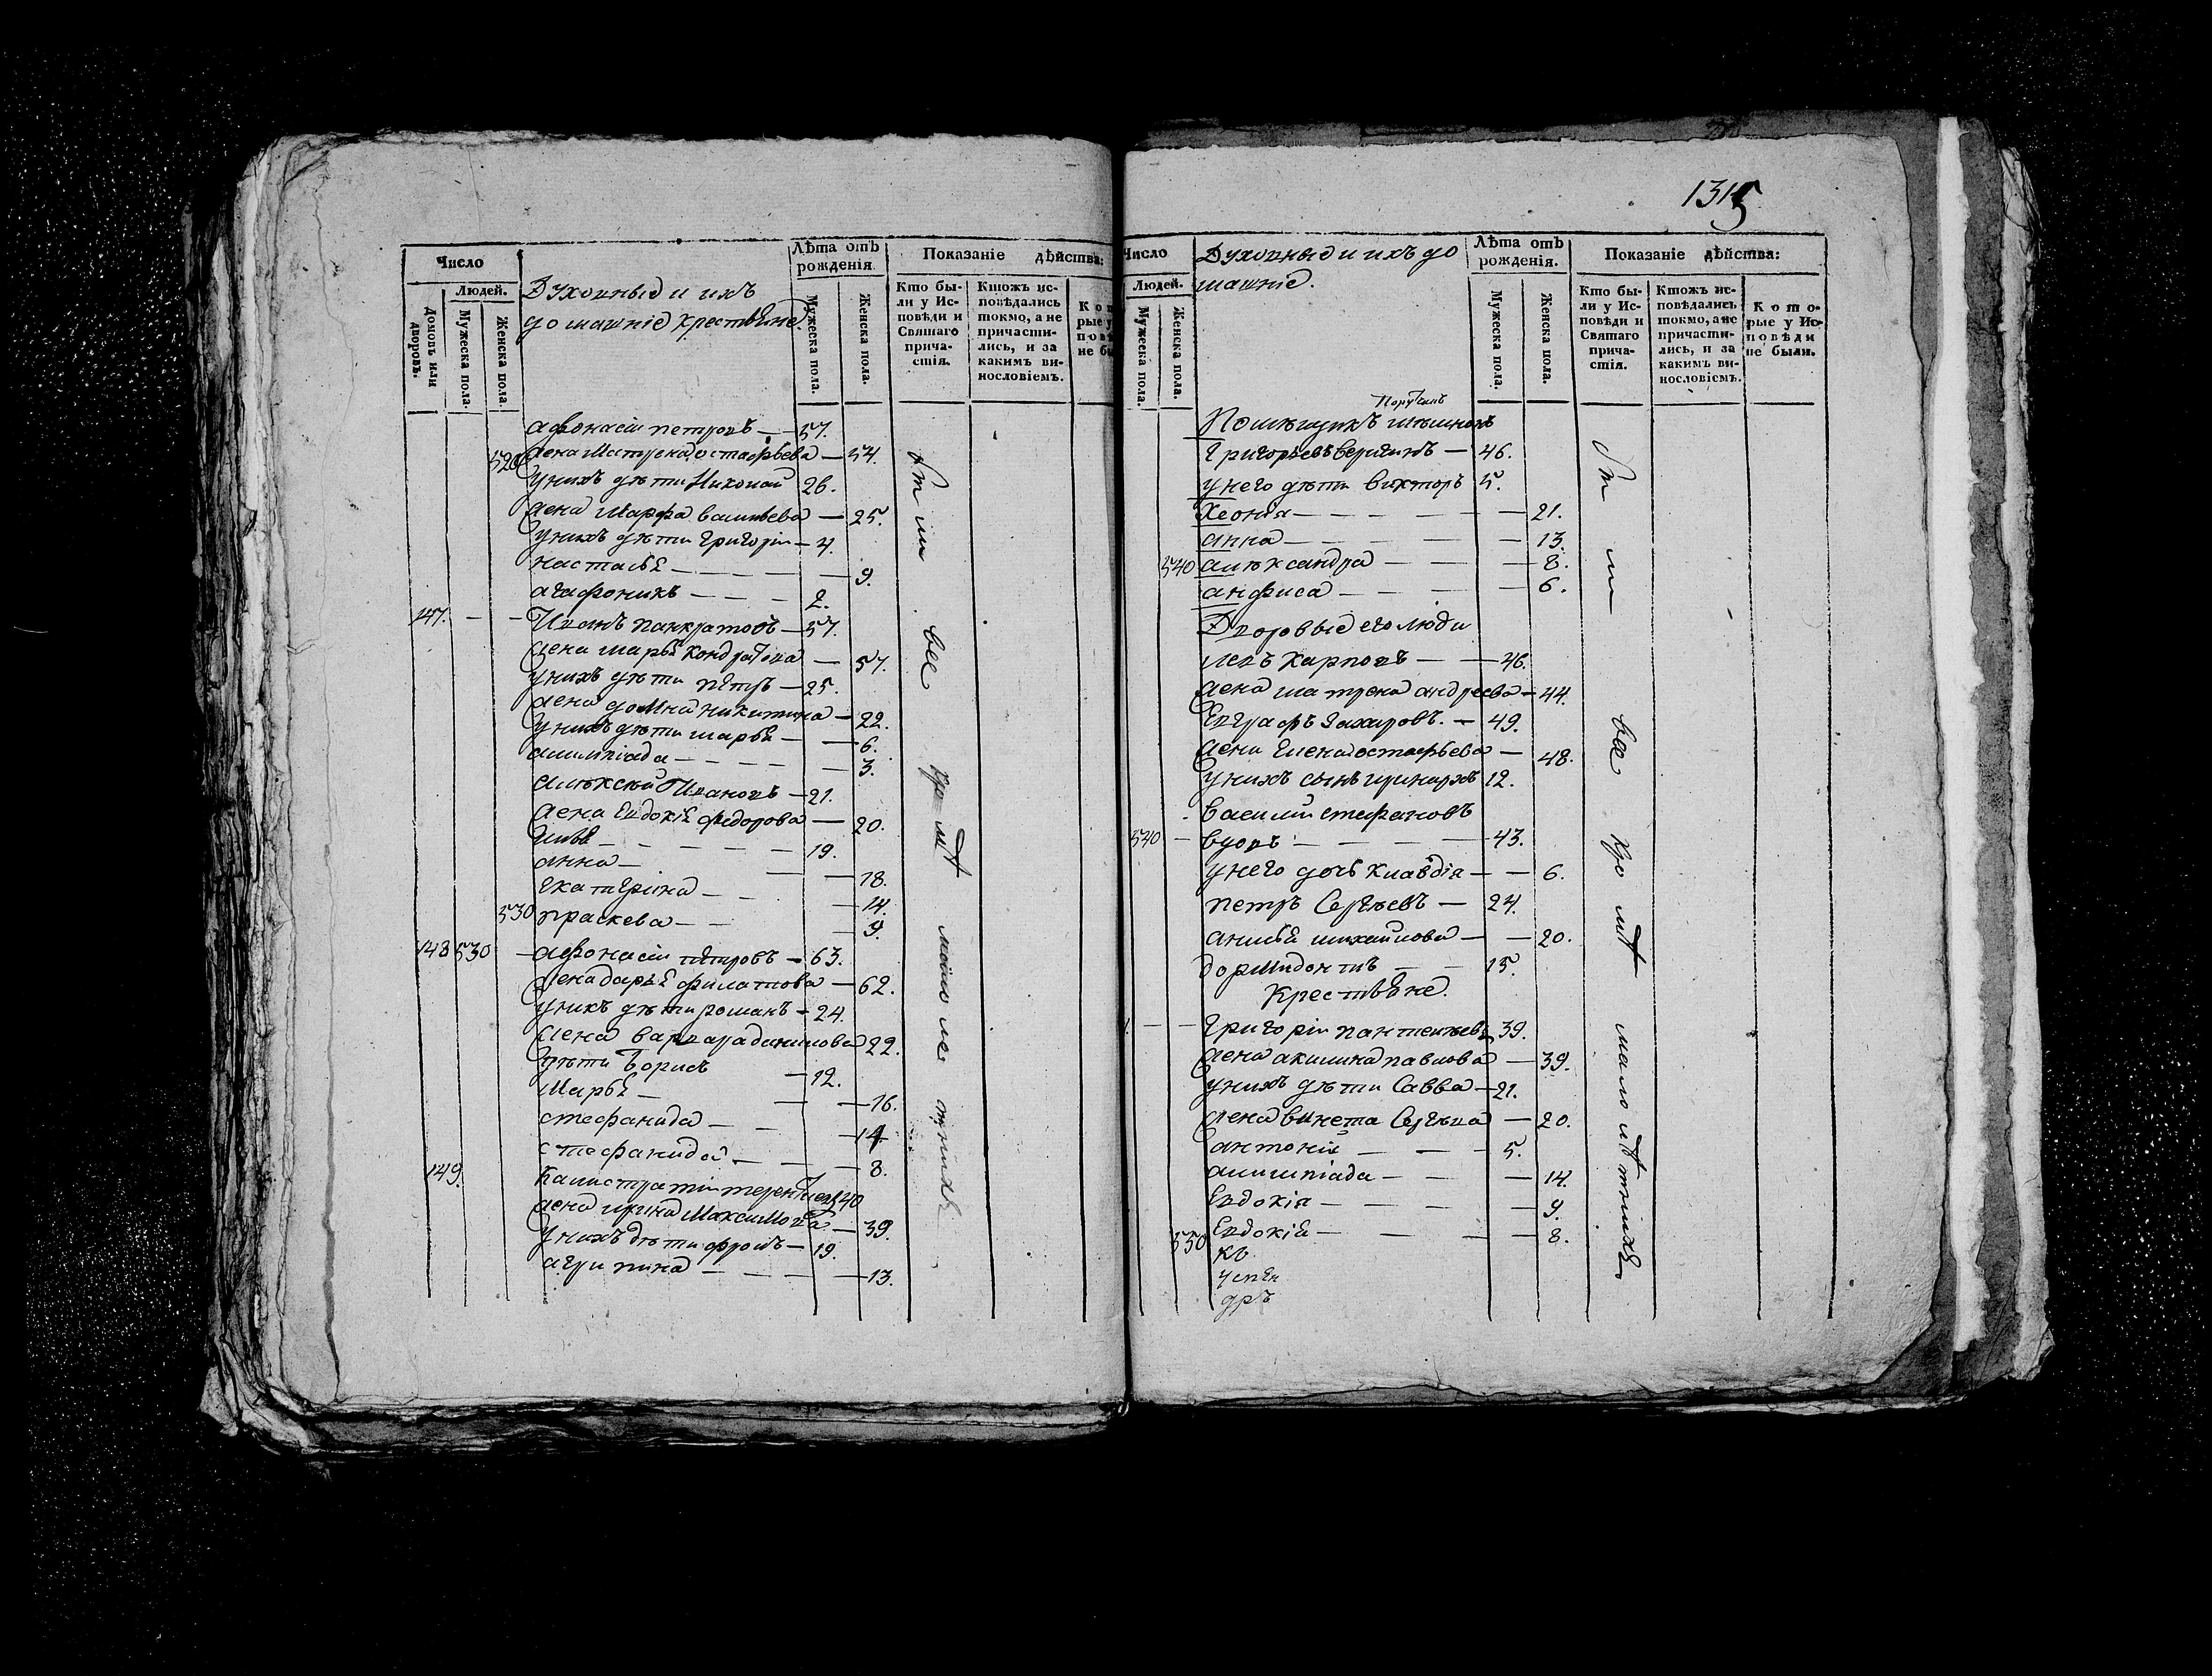 1315
Число
Людей.
Домовъ или дворовъ.
Мужеска пола.
Женска пола.
Духовныя и ихъ
домашнiе крестьяне.
Лѣта отъ рожденiя
Мужеска пола.
Женска пола.
Показанiе дѣйства:
Кто бы-
ли у Ис-
повѣди и
Святаго
прича-
стiя.
Ктожъ ис-
повѣдались
токмо, а не
причасти-
лись, и за
какимъ ви-
нословiемъ.
афонасiи петровъ — 57.
520 жена Матрена остафьева — 54.
у нихъ дѣти Николай 26.
жена Марфа васильева — 25.
у нихъ дѣти григорiи — 4.
настасья — 9.
агафоникъ — 2.
147. Иванъ панкратовъ — 57.
жена марья кондратова — 57.
у нихъ дѣти петръ — 25.
жена домна никитина — 22.
у нихъ дѣти марья — 6.
алимпiада — 3.
алѣксѣй Ивановъ — 21.
жена Евдокiя федорова — 20.
19.
анна — 18.
екатерина — 14.
530 праскева — 9.
148 530 афонасiи петровъ — 63.
жена дарья филатова — 62.
у нихъ дѣти романъ — 24.
жена варвара данилова 22.
дѣти борисъ — 12.
Марья — 16.
стефанида — 14
стефанида — 8.
149. Калистратiи терентьевъ 40
жена ирина Максимова — 39.
у нихъ дѣти фролъ — 19.
агрипина — 13.
были все кромѣ малолетнихъ
Число
Людей.
Мужеска пола.
Женска пола.
Духовныя и ихъ до
машнiе.
Лѣта отъ рожденiя.
Мужеска пола.
Женска пола.
Показанiе дѣйства:
Кто бы-
ли у Ис-
повѣди и
Святаго
прича-
стiя.
Ктожъ ис-
повѣдались
токмо, а не
причасти-
лись, и за
какимъ ви-
нословiемъ.
Кото-
рые у Ис-
повѣди
не были.
Помѣщикъ
Григорьевъ веригинъ — 46.
у него дѣти викторъ 5.
Хеонiя — 21.
анна — 13.
540 алѣксандра — 8.
анфиса — 6.
Дворовые его люди
левъ карповъ — 46.
жена матрена андреева — 44.
Евграфъ Захаровъ. — 49.
жена Елена остафьева — 48.
у нихъ сынъ иринархъ 12.
василiй стефановъ
540 — вдовъ — 43.
у него дочь клавдiа — 6.
петръ Сергѣевъ — 24.
анисья михайлова — 20.
дормидонтъ — 15.
Крестьяне.
григорiи пантелѣевъ 39.
жена акилина павлова — 39.
у нихъ дѣти Савва — 21.
20.
антонiй — 5.
алимпiада — 14.
Евдокiя — 9.
550 Евдокiя — 8.
къ
успен
дръ
были все кромѣ малолѣтнихъ